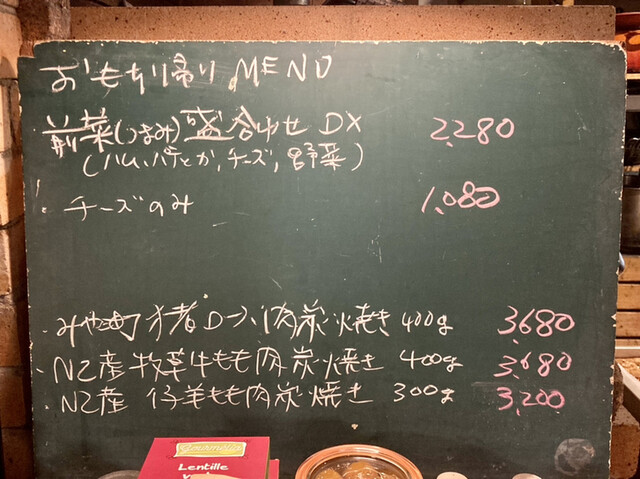 おもちり帰り MENU
前菜(つまみ)盛合わせ DX 2,280
(ハム、パテとか、チーズ、野菜)
・チーズのみ 1,080
・みや町 猪ロース肉炭火焼き 400g 3,680
・NZ産牧草牛もも肉炭火焼き 400g 3,680
・NZ産 仔羊もも肉炭火焼き 300g 3,200
Gourmelia
Lentille